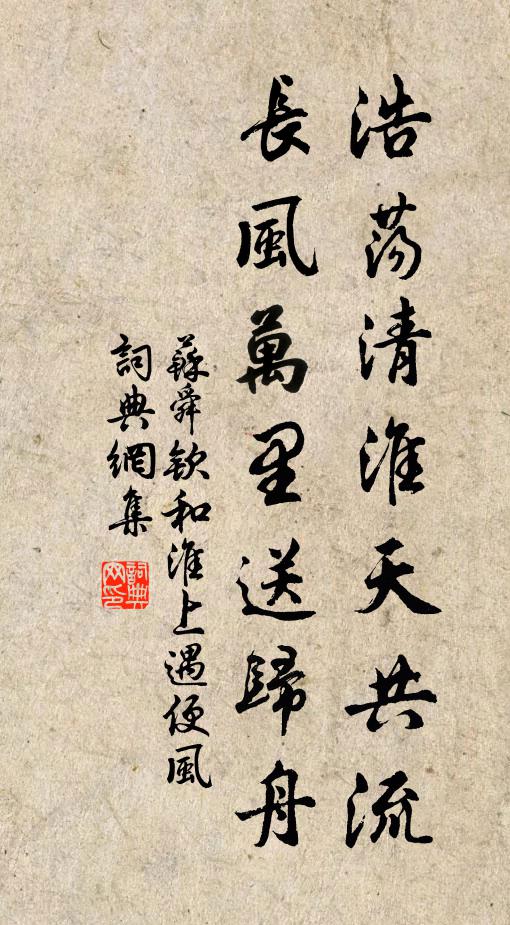 浩蕩清淮天共流
長風萬里送歸舟
蘇舜欽和淮上遇便風
詞典網集
詞典网印